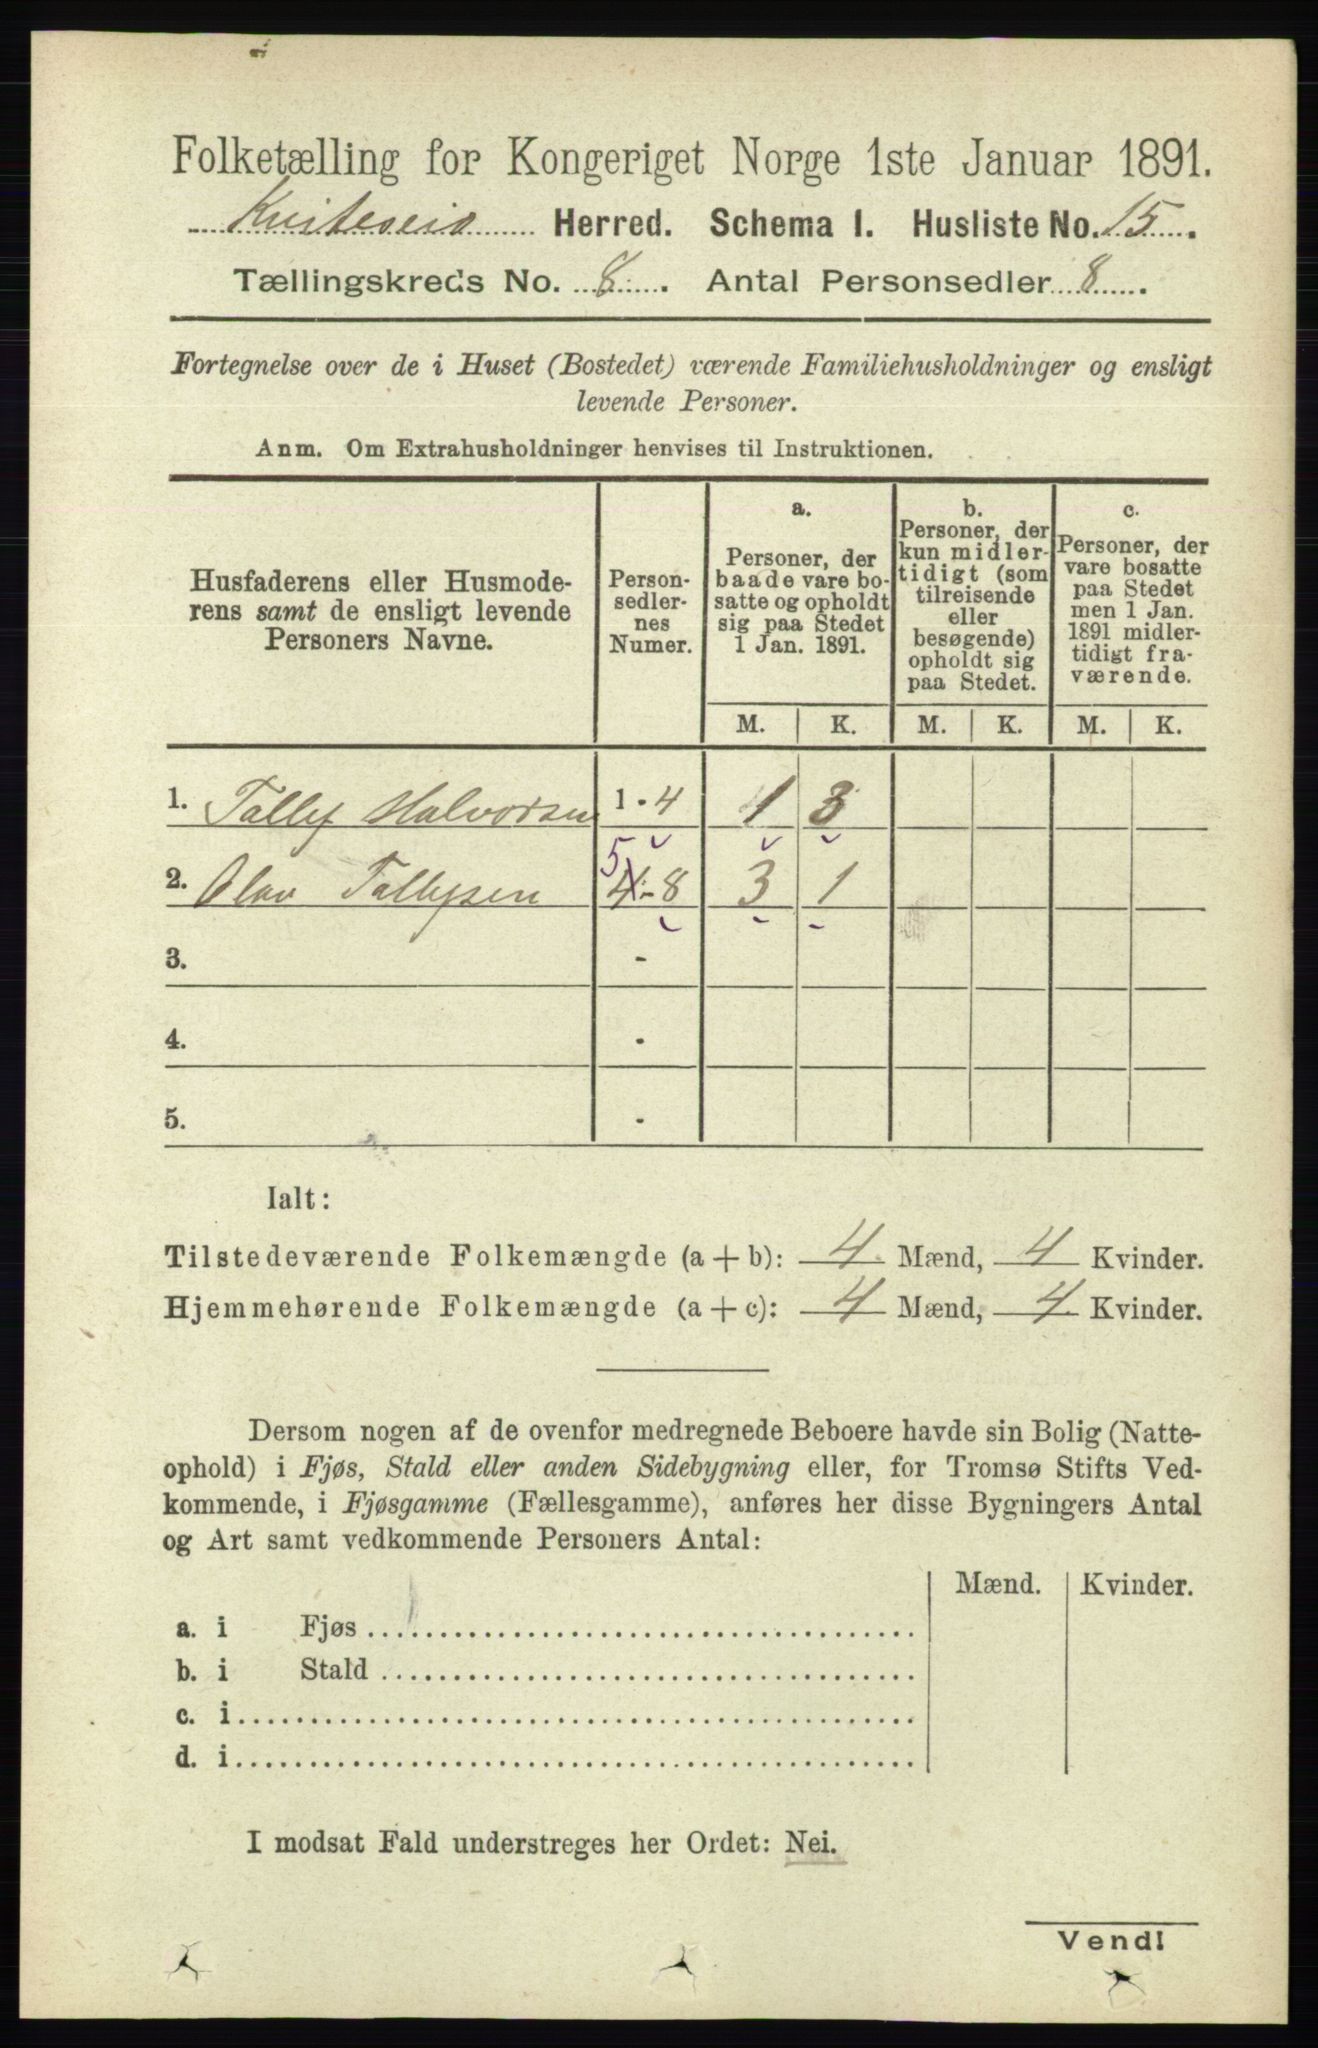 Folketælling for Kongeriget Norge 1ste Januar 1891.
Kviteseid Herred. Schema I. Husliste No. 15.
Tællingskreds No. 8. Antal Personsedler 8.
Fortegnelse over de i Huset (Bostedet) værende Familiehusholdninger og ensligt
levende Personer.
Anm. Om Extrahusholdninger henvises til Instruktionen.
Husfaderens eller Husmode-
rens samt de ensligt levende
Personers Navne.
Person-
sedler-
nes
Numer.
a.
Personer, der
baade vare bo-
satte og opholdt
sig paa Stedet
1 Jan. 1891.
b.
Personer, der
kun midler-
tidigt (som
tilreisende
eller
besøgende)
opholdt sig
paa Stedet.
c.
Personer, der
vare bosatte
paa Stedet
men 1 Jan.
1891 midler-
tidigt fra-
værende.
M. K. M. K. M. K.
1. Tallef Halvorsen 1 - 4 1 3
5
2. Olav Tallefsen 4 - 8 3 1
3. -
4. -
5. -
Ialt:
Tilstedeværende Folkemængde (a + b): 4 Mænd, 4 Kvinder.
Hjemmehørende Folkemængde (a + c): 4 Mænd, 4 Kvinder.
Dersom nogen af de ovenfor medregnede Beboere havde sin Bolig (Natte-
ophold) i Fjøs, Stald eller anden Sidebygning eller, for Tromsø Stifts Ved-
kommende, i Fjøsgamme (Fællesgamme), anføres her disse Bygningers Antal
og Art samt vedkommende Personers Antal:
Mænd. Kvinder.
a. i Fjøs
b. i Stald
c. i
d. i
I modsat Fald understreges her Ordet: Nei.
Vend!